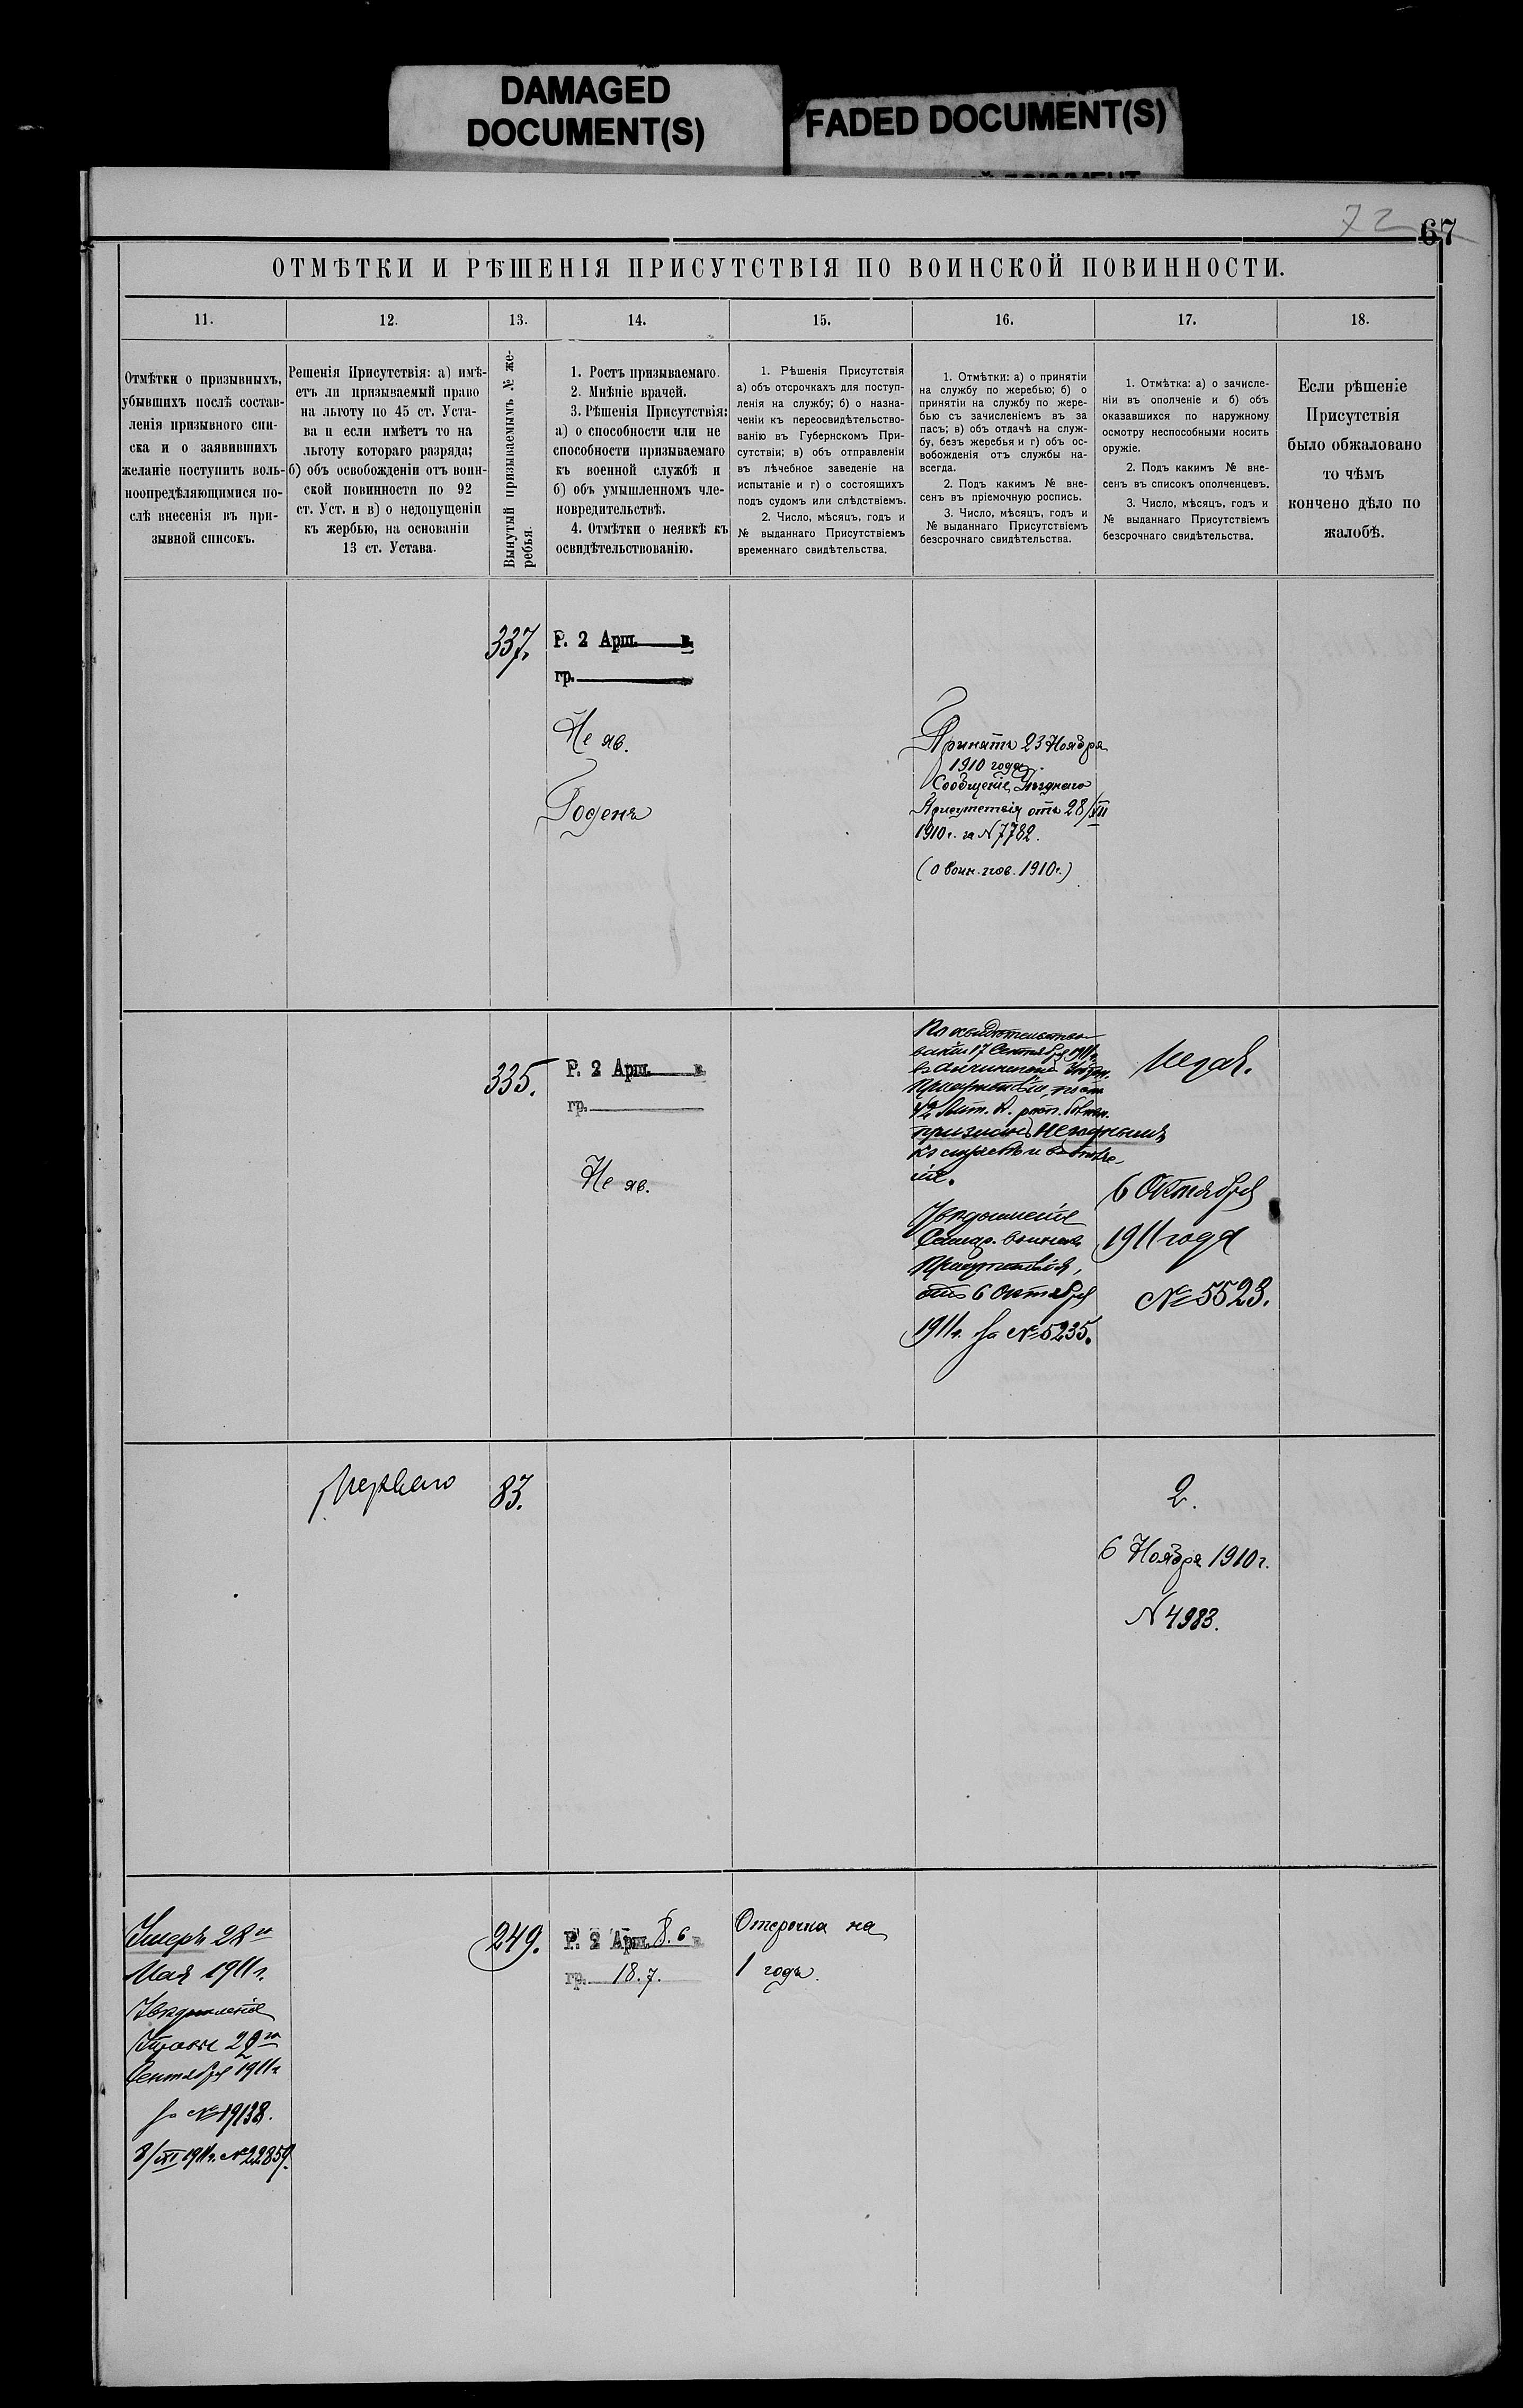 DAMAGED
DOCUMENT(S)
FADED DOCUMENT(S)
72
67
ОТМѢТКИ И РѢШЕНІЯ ПРИСУТСТВІЯ ПО ВОИНСКОЙ ПОВИННОСТИ.
11.
12.
13.
14.
15.
16.
17.
18.
Отмѣтки о призывныхъ,
убывшихъ послѣ состав-
ленія призывного спи-
ска и о заявившихъ
желаніе поступить воль-
ноопредѣляющимися по-
слѣ внесенія въ при-
зывной списокъ.
Решенія Присутствія: а) имѣ-
етъ ли призываемый право
на льготу по 45 ст. Уста-
ва и если имѣетъ то на
льготу котораго разряда;
б) объ освобожденіи отъ воин-
ской повинности по 92
ст. Уст. и в) о недопущеніи
къ жербью, на основаніи
13 ст. Устава.
Вынутый призываемымъ № же-
ребья.
1. Ростъ призываемаго.
2. Мнѣніе врачей.
3. Рѣшенія Присутствія:
а) о способности или не
способности призываемаго
къ военной службѣ и
б) объ умышленномъ чле-
новредительствѣ.
4. Отмѣтки о неявкѣ къ
освидѣтельствованію.
1. Рѣшенія Присутствія
а) объ отсрочкахъ для поступ-
ленія на службу; б) о назна-
ченіи къ переосвидѣтельство-
ванію въ Губернскомъ При-
сутствіи; в) объ отправленіи
въ лѣчебное заведеніе на
испытаніе и г) о состоящихъ
подъ судомъ или слѣдствіемъ.
2. Число, мѣсяцъ, годъ и
№ выданнаго Присутствіемъ
временнаго свидѣтельства.
1. Отмѣтки: а) о принятіи
на службу по жеребью; б) о
принятіи на службу по жере-
бью съ зачисленіемъ въ за
пасъ; в) объ отдачѣ на служ-
бу, безъ жеребья и г) объ ос-
вобожденія отъ службы на-
всегда.
2. Подъ какимъ № вне-
сенъ въ пріемочную роспись.
3. Число, мѣсяцъ, годъ и
№ выданнаго Присутствіемъ
безсрочнаго свидѣтельства.
1. Отмѣтка: а) о зачисле-
ніи въ ополченіе и б) объ
оказавшихся по наружному
осмотру неспособными носить
оружіе.
2. Подъ какимъ № вне-
сенъ въ списокъ ополченцевъ.
3. Число, мѣсяцъ, годъ и
№ выданнаго Присутствіемъ
безсрочнаго свидѣтельства.
Если рѣшеніе
Присутствія
было обжаловано
то чѣмъ
кончено дѣло по
жалобѣ.
337.
Р. 2 Арш. в.
гр.
Не яв.
Годенъ
Принятъ 23 Ноября
1910 года.
Сообщеніе Уѣзднаго
Присутствія отъ 28/XII
1910 г. за N 7782.
(о воин. пов. 1910 г.)
335.
Р. 2 Арш. в.
гр.
Не яв.
По освидѣтельство-
ваніи 17 Сентября 1911 г.
въ Ачинскомъ Уѣздн.
Присутствіи, по ст.
лит. А. расп. болѣзн.
признанъ негоднымъ
къ службѣ и въ ополче-
ніе.
Увѣдомленіе
воинск.
Присутствія,
отъ 6 Октября
1911 г. за № 5235.
6 Октября
1911 года
№ 5523.
Перваго
83.
2.
6 Ноября 1910 г.
N 4983.
Умеръ 28го
Мая 1911 г.
Увѣдомленіе
Управы 29го
Сентября 1911 г.
за № 19138.
8/XI 1911 г. № 22859.
249.
Р. 2 Арш. 8.6 в.
гр. 18.7.
Отсрочка на
1 годъ.